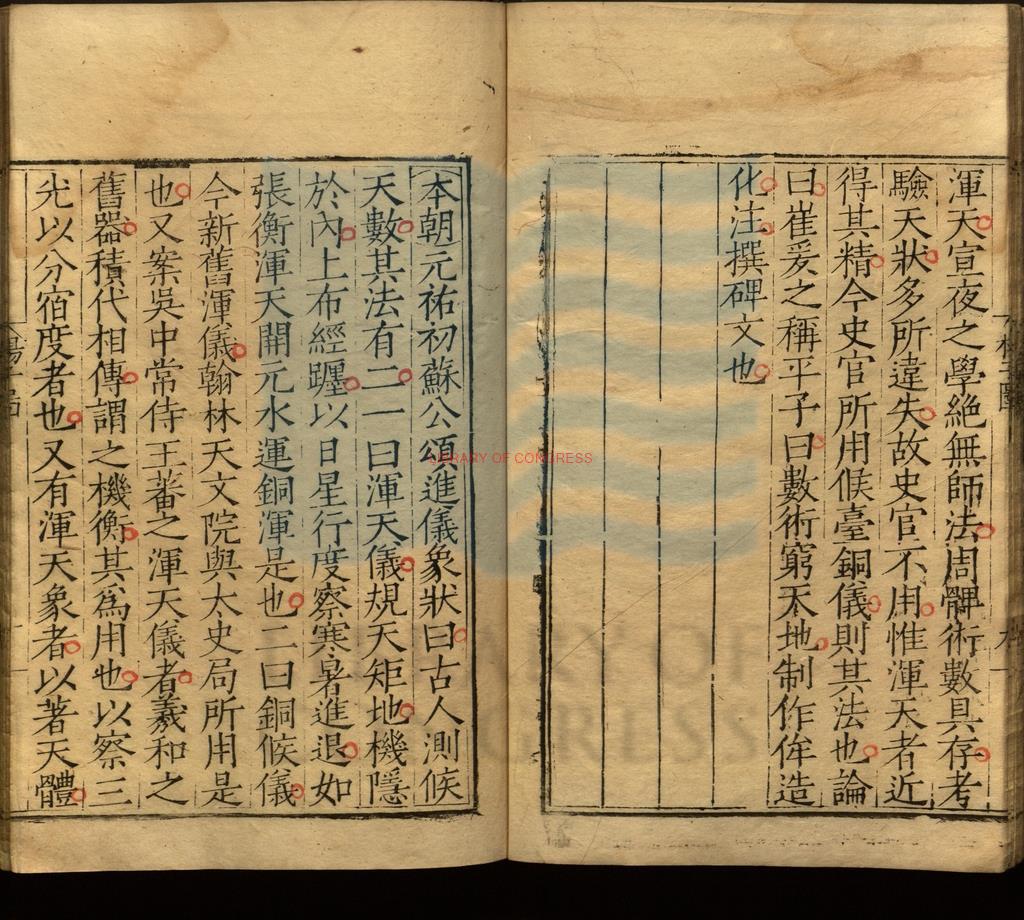 渾天宣夜之學絶無師法周髀術數具存考
驗天狀多所違失故史官不用惟渾天者近
得其精今史官所用候臺銅儀則其法也論
曰崔爰之稱平子曰數術窮天地制作侔造
化注撰碑文也
本朝元祐初蘇公頌進儀象狀曰古人測候
天數其法有二一曰渾天儀規天矩地機隱
於內上布經躔以日星行度察寒暑進退如
張衡渾天開元水運銅渾是也二曰銅候儀
今新舊渾儀翰林天文院與太史局所用是
也又案吳中常侍王蕃之渾天儀者羲和之
舊器積代相傳謂之機衡其為用也以察三
光以分宿度者也又有渾天象者以著天體
LIBRARY OF CONGRESS